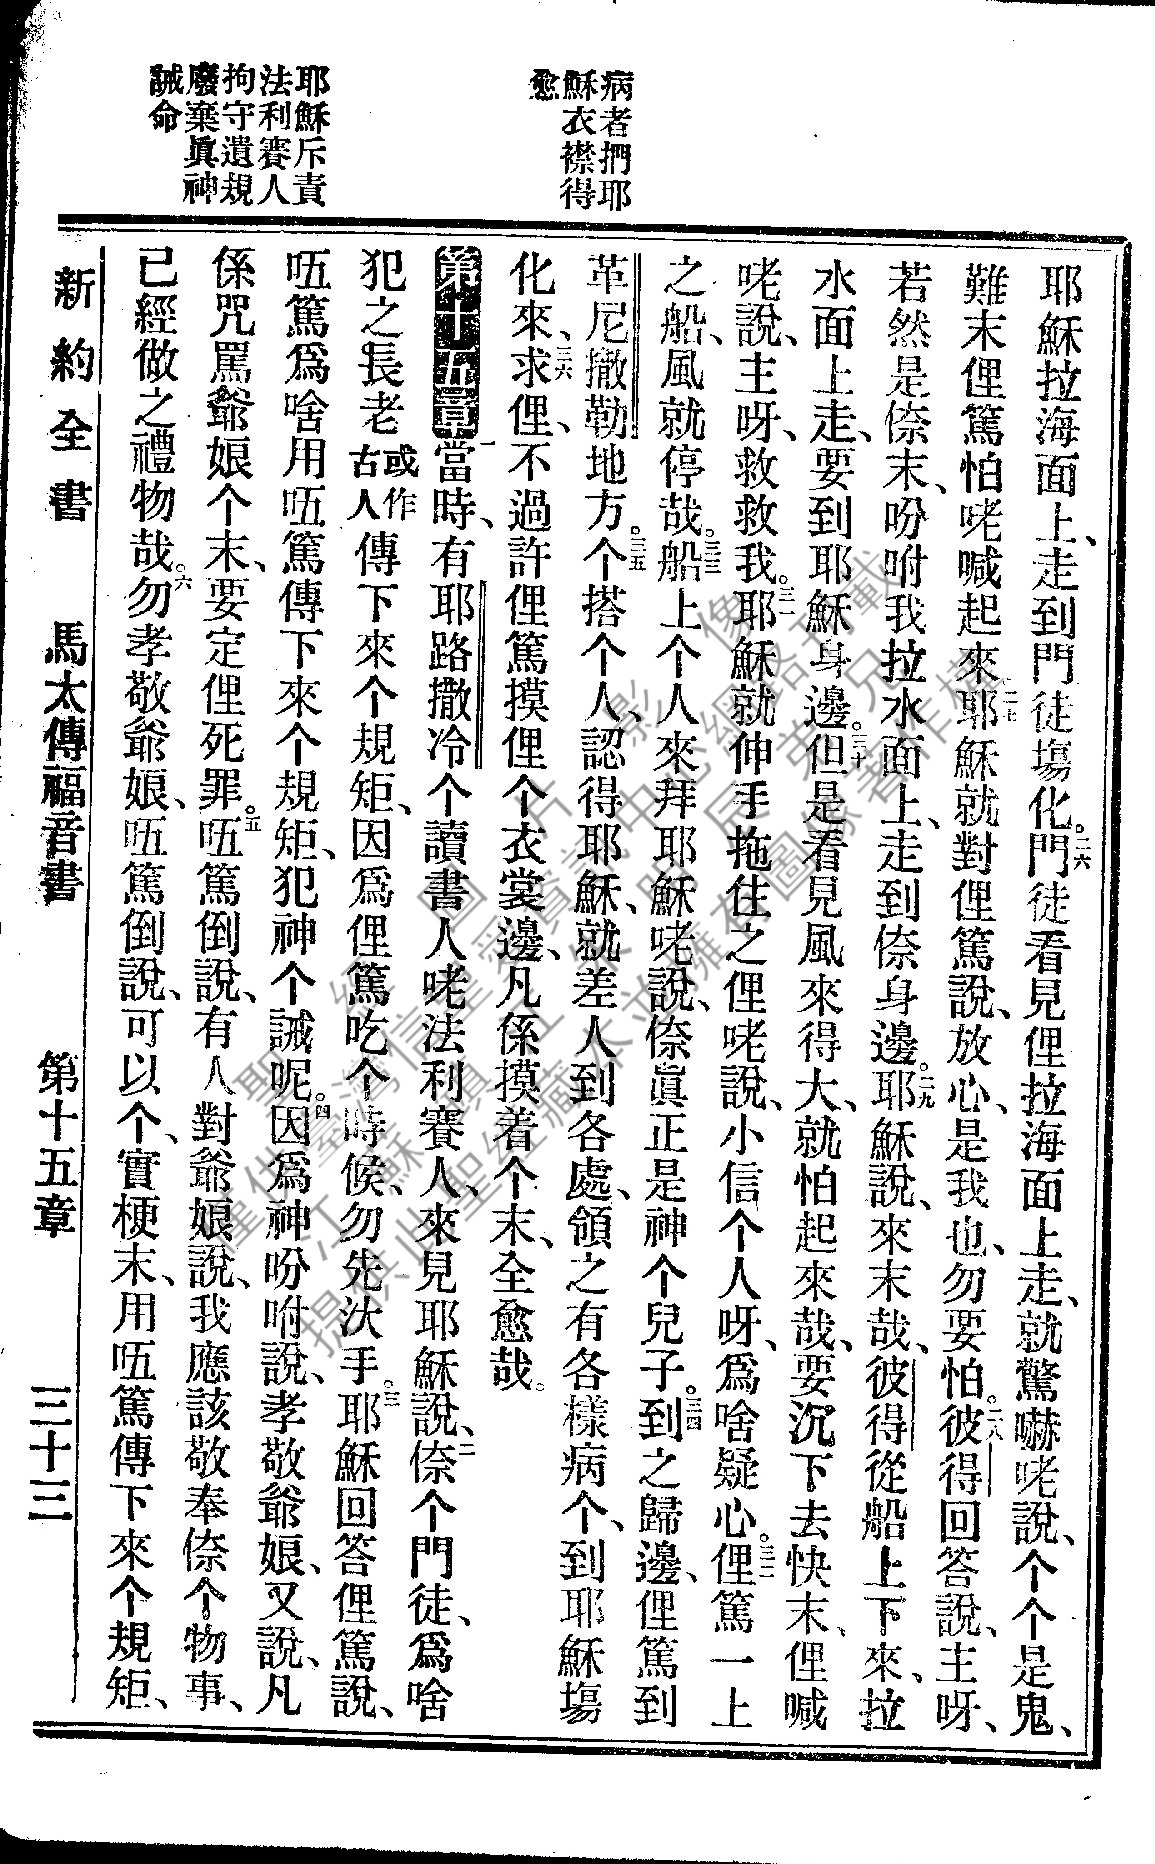 病者捫耶
穌衣襟得
愈
耶穌斥責
法利賽人
拘守遺規
廢棄眞神
誡命
耶穌拉海面上、走到門徒塲化。二六門徒看見俚拉海面上走、就驚嚇咾說、个个是鬼、
難末俚篤怕咾喊起來。二七耶穌就對俚篤說、放心、是我也、勿要怕。二八彼得回答說、主呀、
若然是倷末、吩咐我拉水面上、走到倷身邊。二九耶穌說、來末哉、彼得從船上下來、拉
水面上走、要到耶穌身邊。三十但是看見風來得大、就怕起來哉、要沉下去快末、俚喊
咾說、主呀、救救我。三一耶穌就伸手拖住之俚咾說、小信个人呀、爲啥疑心。三二俚篤一上
之船、風就停哉。三三船上个人來拜耶穌咾說、倷眞正是神个兒子。三四到之歸邊、俚篤到
革尼撒勒地方。三五个搭个人、認得耶穌、就差人到各處、領之有各樣病个、到耶穌塲
化來、三六求俚、不過許俚篤摸俚个衣裳邊、凡係摸着个末、全愈哉。
第十五章一當時、有耶路撒冷个讀書人咾法利賽人、來見耶穌說、二倷个門徒、爲啥
犯之長老或作古人傳下來个規矩、因爲俚篤吃个時候、勿先汏手。三耶穌回答俚篤說、
㕶篤爲啥用㕶篤傳下來个規矩、犯神个誡呢。四因爲神吩咐說、孝敬爺娘、又說、凡
係咒罵爺娘个末、要定俚死罪。五㕶篤倒說、有人對爺娘說、我應該敬奉倷个物事、
已經做之禮物哉。六勿孝敬爺娘、㕶篤倒說、可以个、實梗末、用㕶篤傳下來个規矩、
新約全書　馬太傳福音書　第十五章　三十三
聖經圖片影像
僅供臺灣信望愛資訊中心網路刊載
江蘇鎮江朱明辰弟兄
提供此聖經藏本並擁有圖像著作權